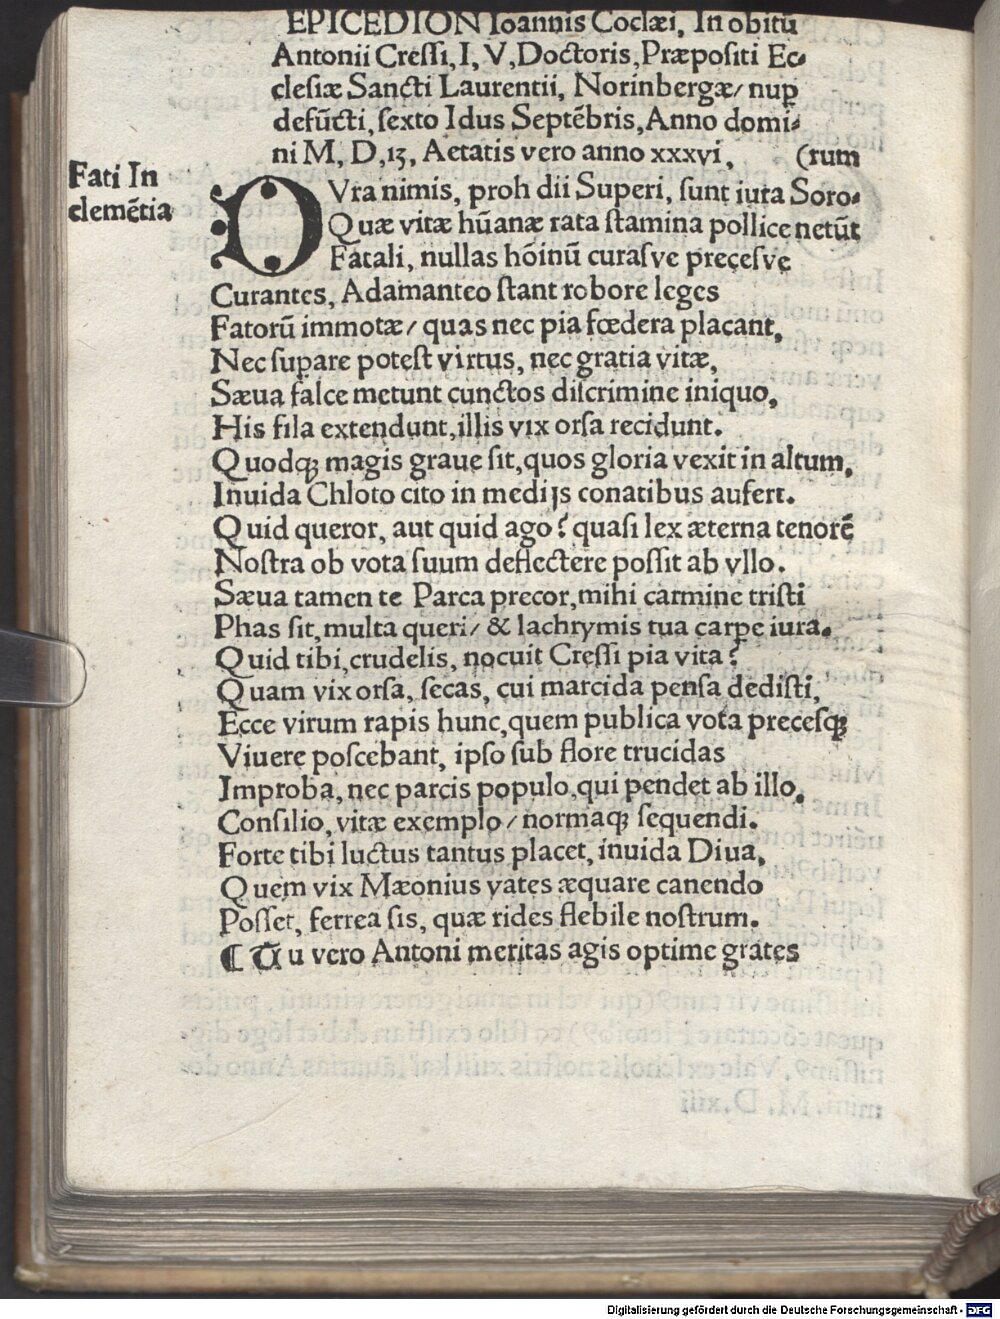 EPICEDION Ioannis Coclæi, In obitu
Antonii Cressi, I, V, Doctoris, Præpositi Ec-
clesiæ Sancti Laurentii, Norinbergæ/ nuꝑ
defūcti, sexto Idus Septēbris, Anno domi-
ni M, D, 13, Aetatis vero anno xxxvi, (rum
Fati In
clemētia
DVra nimis, proh dii Superi, sunt iura Soro-
Quæ vitæ hūanæ rata stamina pollice netūt
Fatali, nullas hōinū curasve precesve
Curantes, Adamanteo stant robore leges
Fatorū immotæ/ quas nec pia fœdera placant,
Nec suꝑare potest virtus, nec gratia vitæ,
Sæua falce metunt cunctos discrimine iniquo,
His fila extendunt, illis vix orsa recidunt.
Quodqꝫ magis graue sit, quos gloria vexit in altum,
Inuida Chloto cito in medijs conatibus aufert.
Quid queror, aut quid ago? quasi lex æterna tenorē
Nostra ob vota suum deflectere possit ab vllo.
Sæua tamen te Parca precor, mihi carmine tristi
Phas sit, multa queri/ & lachrymis tua carpe iura.
Quid tibi, crudelis, nocuit Cressi pia vita?
Quam vix orsa, secas, cui marcida pensa dedisti,
Ecce virum rapis hunc, quem publica vota precesqꝫ
Viuere poscebant, ipso sub flore trucidas
Improba, nec parcis populo, qui pendet ab illo,
Consilio, vitæ exemplo/ normaqꝫ sequendi.
Forte tibi luctus tantus placet, inuida Diua,
Quem vix Mæonius vates æquare canendo
Posset, ferrea sis, quæ rides flebile nostrum.
¶ Tu vero Antoni meritas agis optime grates
Digitalisierung gefördert durch die Deutsche Forschungsgemeinschaft - DFG